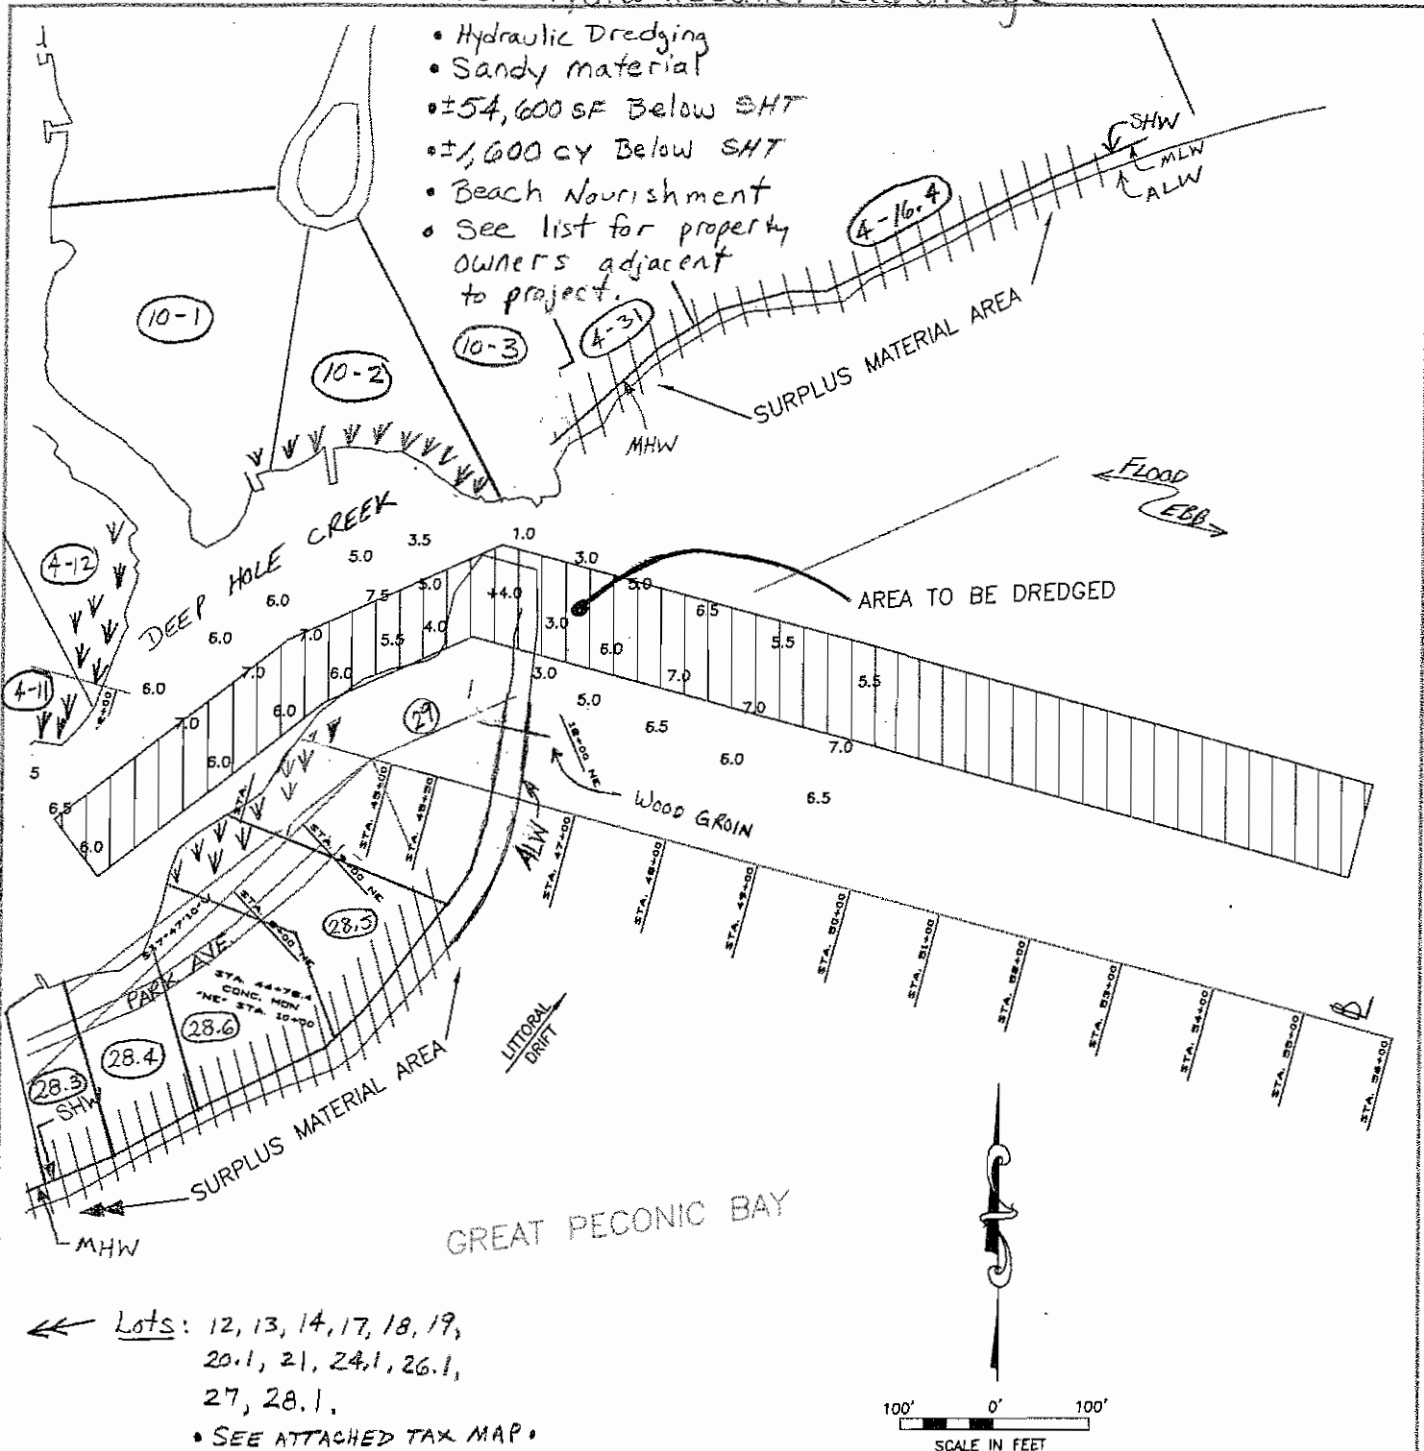 • Hydraulic Dredging
• Sandy material
• ±54,600 SF Below SHT
• ±1,600 CY Below SHT
• Beach Nourishment
• See list for property
owners adjacent
to project.
SHW
MLW
ALW
4-16.4
4-31
10-1
10-2
10-3
SURPLUS MATERIAL AREA
MHW
FLOOD
EBB
DEEP HOLE CREEK
4-12
4-11
AREA TO BE DREDGED
1.0
3.5
3.0
5.0
5.0
5.0
7.5
+4.0
6.5
6.0
3.0
4.0
5.5
5.5
6.0
7.0
6.0
7.0
6.0
3.0
7.0
5.5
6.0
6.0
5.0
7.0
7.0
6.5
6.0
6.0
7.0
5
6.5
6.5
6.0
29
18+00 NE
WOOD GROIN
ALW
STA.
STA. 45+00
STA. 45+50
STA. 47+00
STA. 48+00
STA. 49+00
STA. 50+00
STA. 51+00
STA. 52+00
STA. 53+00
STA. 54+00
STA. 55+00
STA. 56+00
BL
28.5
PARK AVE.
STA. 44+78.4
CONC. MON
"NE" STA. 10+00
28.6
28.4
28.3
SHW
LITTORAL
DRIFT
SURPLUS MATERIAL AREA
MHW
GREAT PECONIC BAY
Lots: 12, 13, 14, 17, 18, 19,
20.1, 21, 24.1, 26.1,
27, 28.1.
• SEE ATTACHED TAX MAP •
100' 0' 100'
SCALE IN FEET